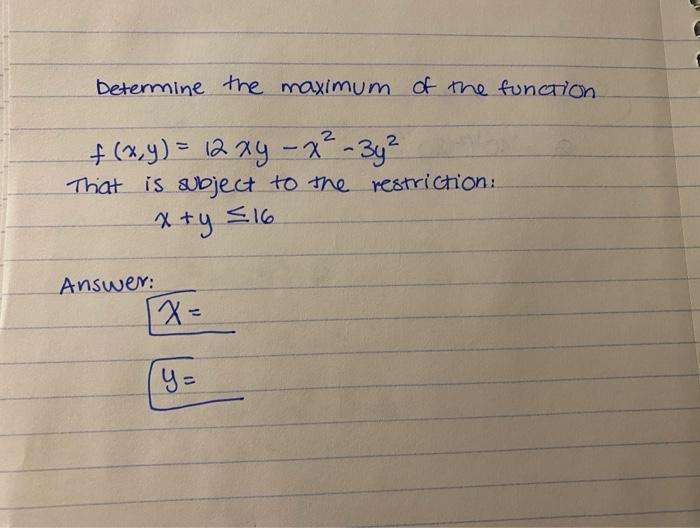 Determine the maximum of the function
f(x,y) = 12xy - x² - 3y²
That is subject to the restriction:
x + y ≤ 16
Answer:
x =
y =